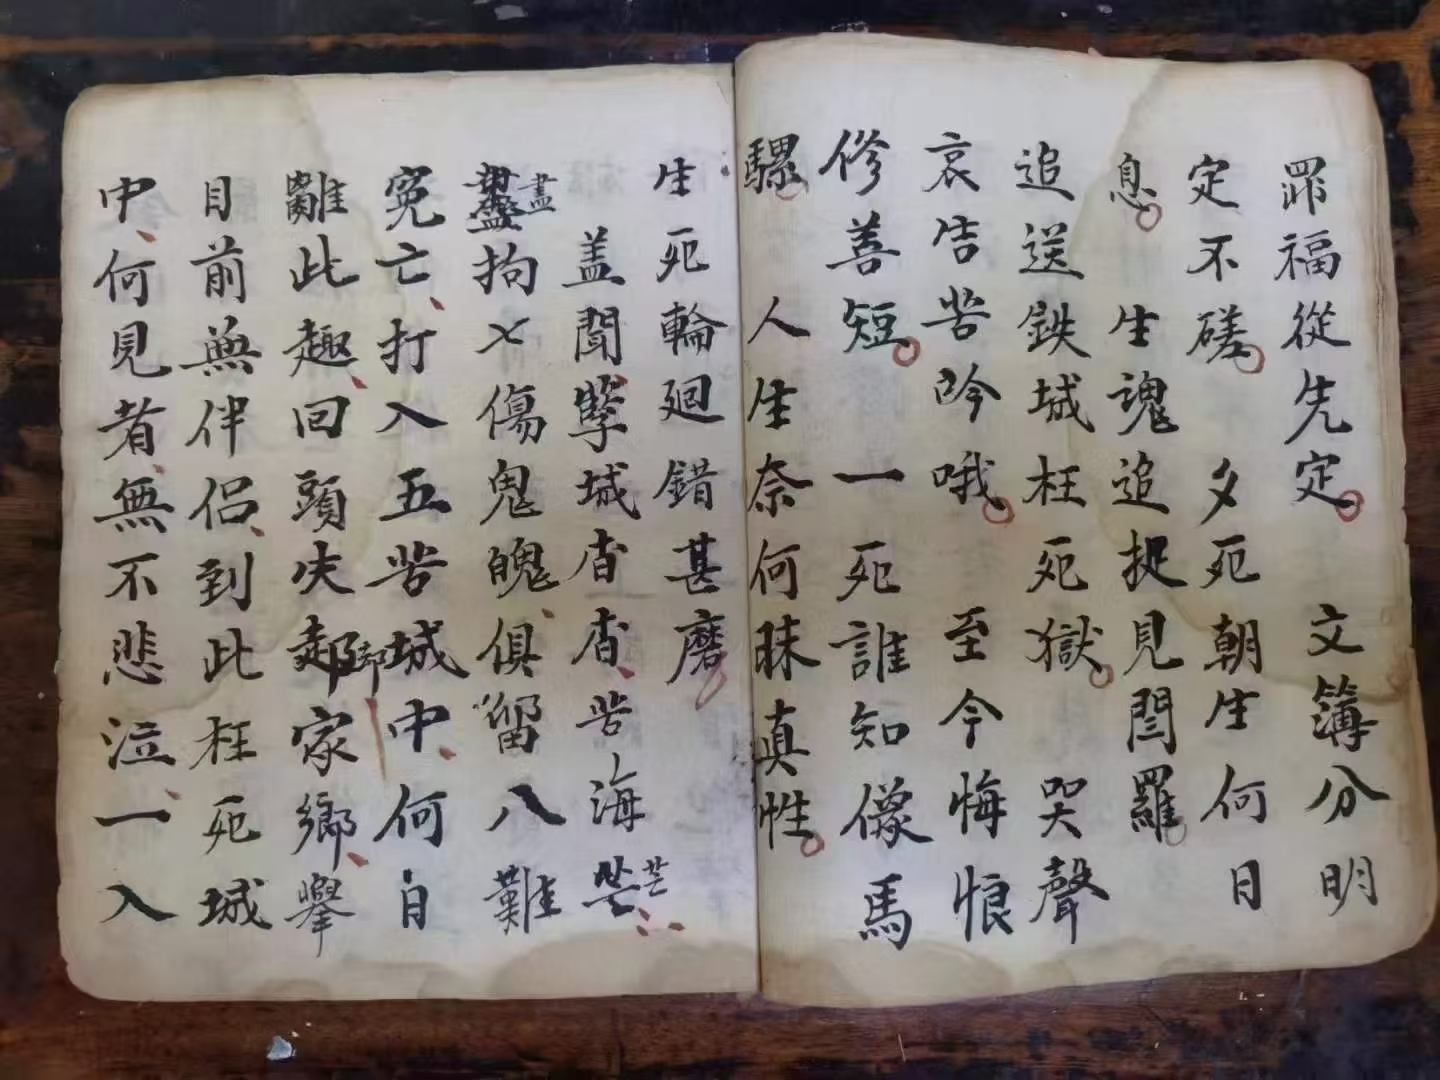 罪福從先定文簿分明
定不磋夕死朝生何日
息生魂追捉見閻羅
追送鉄城枉死獄哭聲
哀告苦吟哦至今悔恨
修善短一死誰知儍馬
騾人生奈何昧真性
生死輪廻錯甚磨
盖聞孽城杳杳苦海芒芒
盡拘七傷鬼魄俱留八難
寃亡打入五苦城中何自
離此趣回頭失却家鄉舉
目前無伴侣到此枉死城
中何見者無不悲泣一入